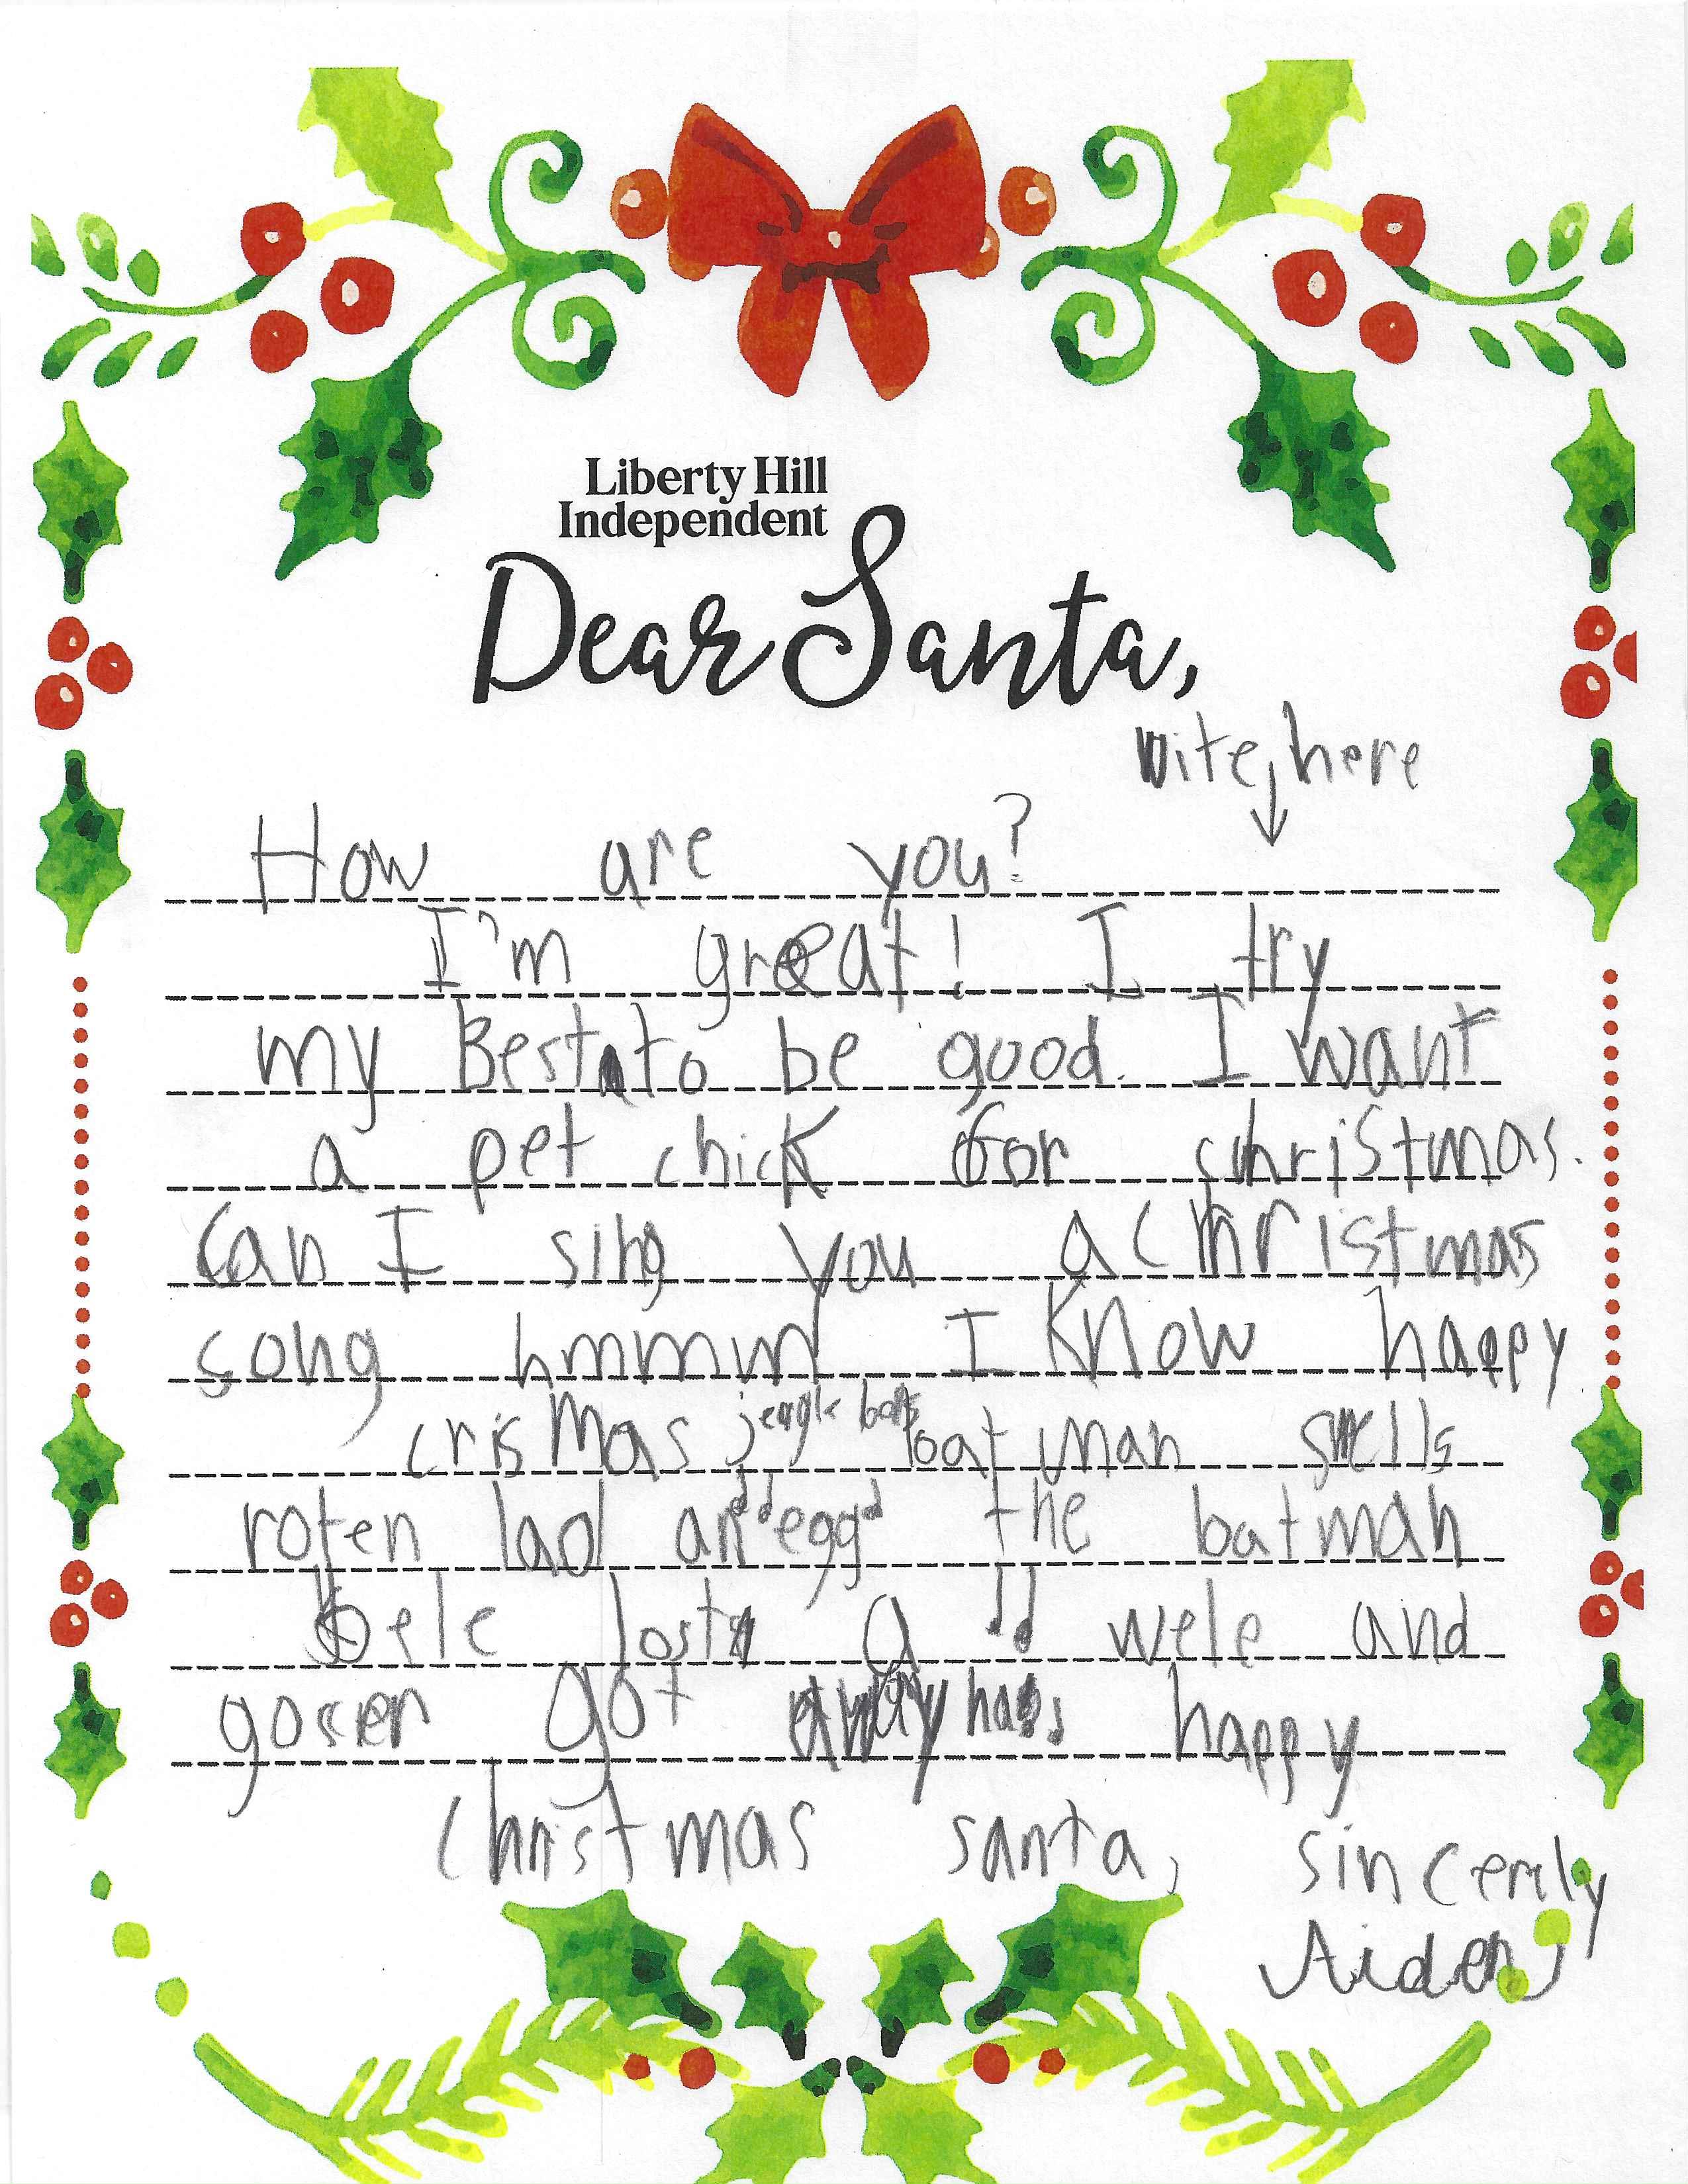 Liberty Hill
Independent
Dear Santa,
wite here
How are you?
I'm great! I try
my Best to be good. I want
a pet chick for christmas.
Can I sing you a christmas
song hmmm I Know happy
crismas jengle bells batman smells
roten lad an egg the batman
bele lost a wele and
gocer got away haha happy
christmas santa, sincerily
Aiden